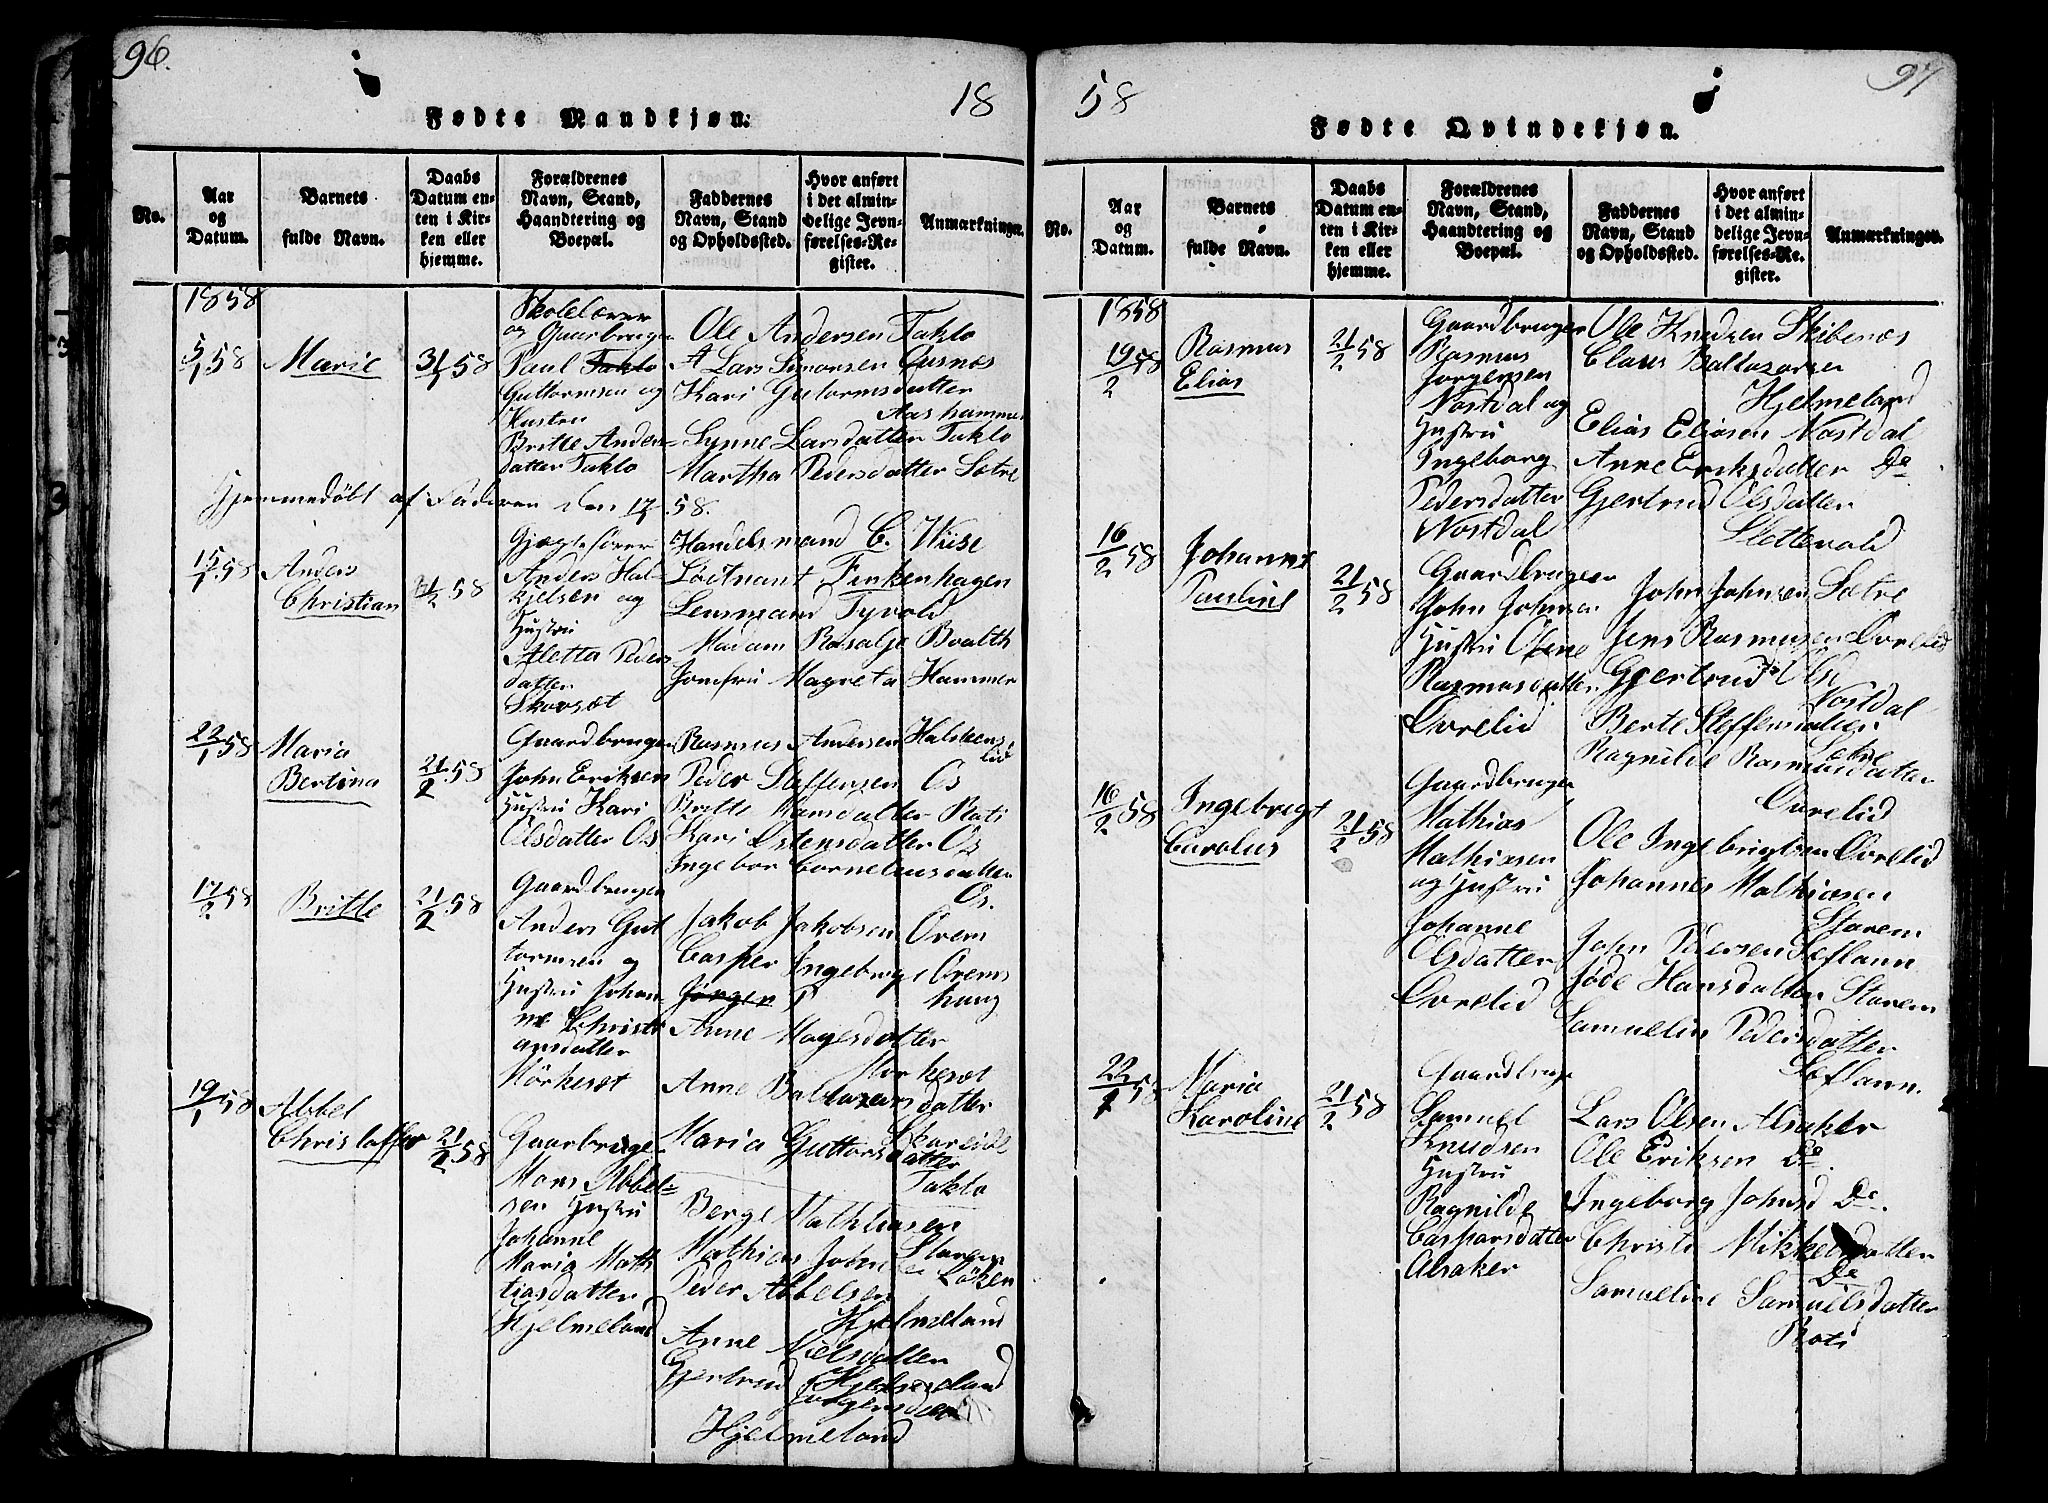 96.
18
Fødte Mandkjøn.
No.
Aar
og
Datum.
Barnets
fulde Navn.
Daabs
Datum en-
ten i Kir-
ken eller
hjemme.
Forældrenes
Navn, Stand,
Haandtering og
Boepæl.
Faddernes
Navn, Stand
og Opholdssted.
Hvor anført
i det almin-
delige Jevn-
førelses-Re-
gister.
Anmarkninger.
1858
5/1 58
Marie
31/1 58
Skolelærer
og Gaarbruger
Paul Taklo
Guttormsen og
Hustru
Britte Ander-
datter Taklo
Ole Andersen Taklo
Lars Simonsen Gusnæs
Kari Gutormsdatter
Aashammer
Synne Larsdatter Taklo
Martha Pedersdatter Sætre
Hjemmedöbt af Faderen den 17/1 58.
15/1 58
Anders
Christian
21/2 58
Anders Hal-
kjelsen og
Hustru
Aletta Peders
datter
Skorsæt
Handelsmand C. Wiise
Löitnant Finkenhagen
Lensmand Tyvold
Madam Rosalje Boalth
Jomfru Magreta Hammer
22/1 58
Maria
Bertina
21/2 58
Gaardbruger
John Eriksen
Hustru Kari
Olsdatter Os
Rasmus Andersen Halstens
lid
Peder Steffensen Os
Britte Hansdatter Rati
Kari Ostensdatter Os
Ingebor Corneliusdatter
Os.
17/2 58
Britte
21/2 58
Gaardbruger
Anders Gut
tormsen og
Hustru Johan-
ne Christi
ansdatter
Mörkesæt
Jakob Jakobsen Orem
Casper Ingebrigt Orems
haug
Jörgen P
Anne Mogesdatter
Morkesæt
Anne Baltazersdatter
Skareide
19/1 58
Abbel
Christoffer
21/2 58
Gaarbruge
Mons Abbel-
sen Hustru
Johanne
Maria Math
tiasdatter
Hjelmeland
Maria Guttorsdatter
Taklo
Berge Mathiasen
Mathias John Starem
Löken
Peder Abbelsen
Hjelmeland
Anne Nielsdatter
Hjelmeland
Gjertrud Jorgensdatter
Hjelmeland
97
58
Fødte Qvindekjøn.
No.
Aar
og
Datum.
Barnets
fulde Navn.
Daabs
Datum en-
ten i Kir-
ken eller
hjemme.
Forældrenes
Navn, Stand,
Haandtering og
Boepæl.
Faddernes
Navn, Stand
og Opholdssted.
Hvor anført
i det almin-
delige Jevn-
førelses-Re-
gister.
Anmarkninger.
1858
19/2 58
Rasmus
Elias
21/2 58
Gaardbruger
Rasmus
Jorgensen
Nostdal og
Hustru
Ingeborg
Pedersdatter
Nostdal
Ole Knudsen Skibenæs
Claus Baltazersen
Hjelmeland
Elias Eliasen Nostdal
Anne Eriksdatter De
Gjertrud Olsdatter
Slottevold
16/2 58
Johanne
Pauline
21/2 58
Gaardbruger
John Johnsen
Hustru Oline
Rasmusdatter
Ovrelid
John Johnsen Sætre
Jens Rasmusen Ovrelid
Gjertrud Ols
Nostdal
Berte Steffensdatter
Sætre
Ragnilde Rasmusdatter
Ovrelid
16/2 58
Ingebregt
Carolus
21/2 58
Gaardbruger
Mathias
Mathiasen
og Hustru
Johanne
Olsdatter
Ovrelid
Ole Ingebrigtsen Ovrelid
Johannes Mathiasen
Starem
John Pedersen Seflann
Jöde Hansdatter Starem
Samueline Pedersdatter
Seflann.
22/1 58
Maria
Karoline
21/2 58
Gaardbruge
Samuel
Knudsen
Hustru
Ragnilde
Casparsdatter
Alsaker
Lars Olsen Alsaker
Ole Eriksen De.
Ingeborg Johnsd De.
Christi Mikkelsdatter
De
Samueline Samuelsdatter
Rati